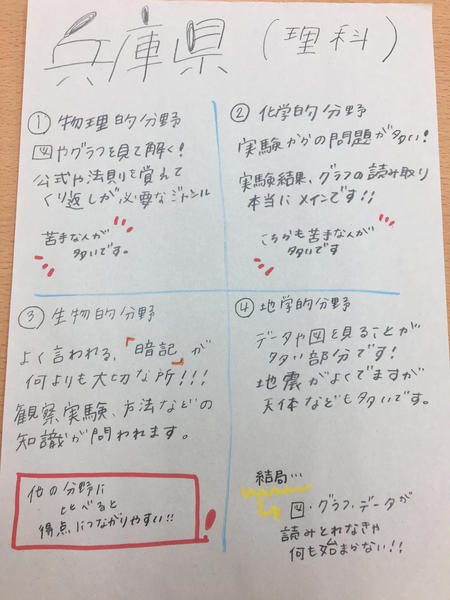 兵庫県（理科）
① 物理的分野
図やグラフを見て解く！
公式や法則を覚えて
くり返しが必要なジャンル
苦手な人が
多いです。
② 化学的分野
実験からの問題が多い！
実験結果、グラフの読み取り
本当にメインです！！
こちらも苦手な人が
多いです
③ 生物的分野
よく言われる、「暗記」が
何よりも大切な所！！！
観察、実験、方法などの
知識が問われます。
他の分野に
比べると
得点につながりやすい！！
④ 地学的分野
データや図を見ることが
多い部分です！
地震がよくでますが
天体なども多いです。
結局…
図・グラフ、データが
読みとれなきゃ
何も始まらない！！